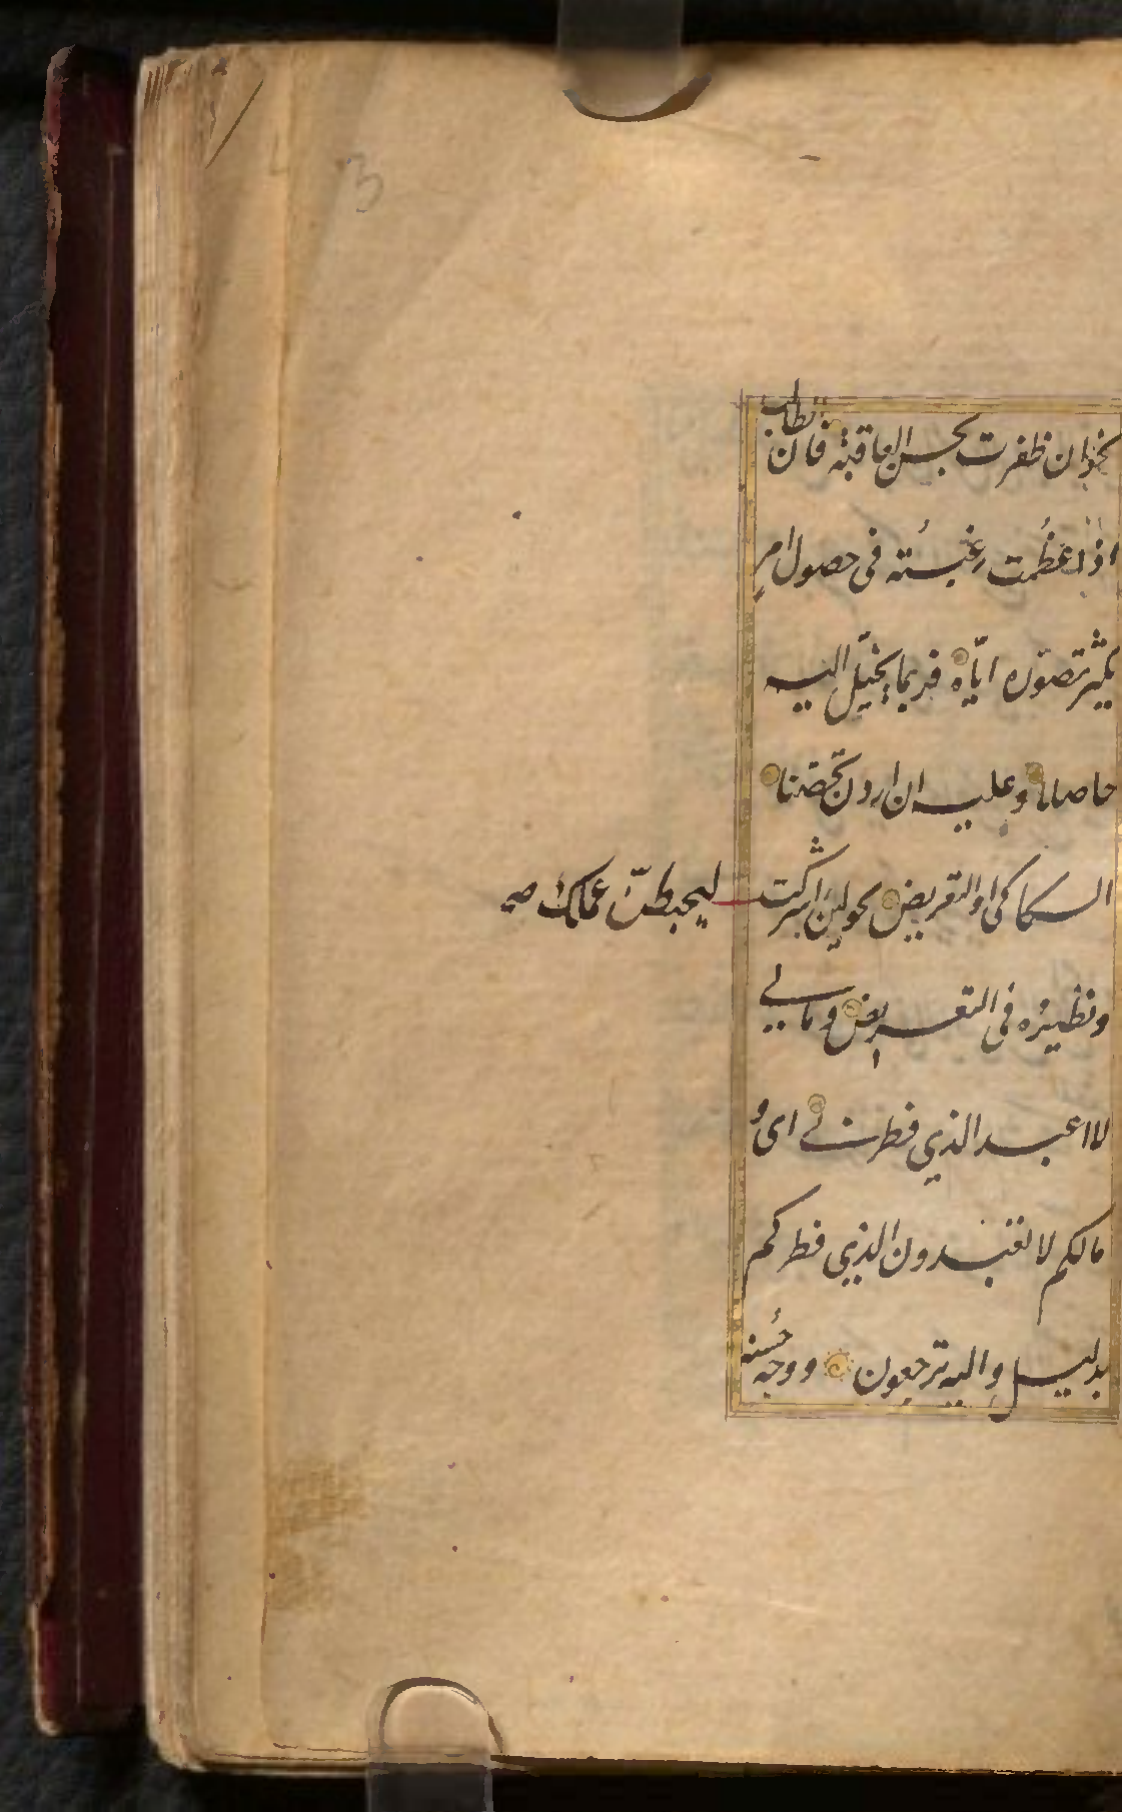 نحو ان ظفرت بحسن العاقبة فان الطالب
اذا عظمت رغبته فى حصول امر
يكثر تصوّره ايّاه فربما يخيّل اليه
حاصلا وعليه ان اردن تحصّنا
السكاكى او للتعريض نحو لئن اشركت
ليحبطنّ عملك صح
ونظيره فى التعريض ومالي
لا اعبد الذي فطرني اى و
مالكم لا تعبدون الذي فطركم
بدليل واليه ترجعون ووجه حسنه
3